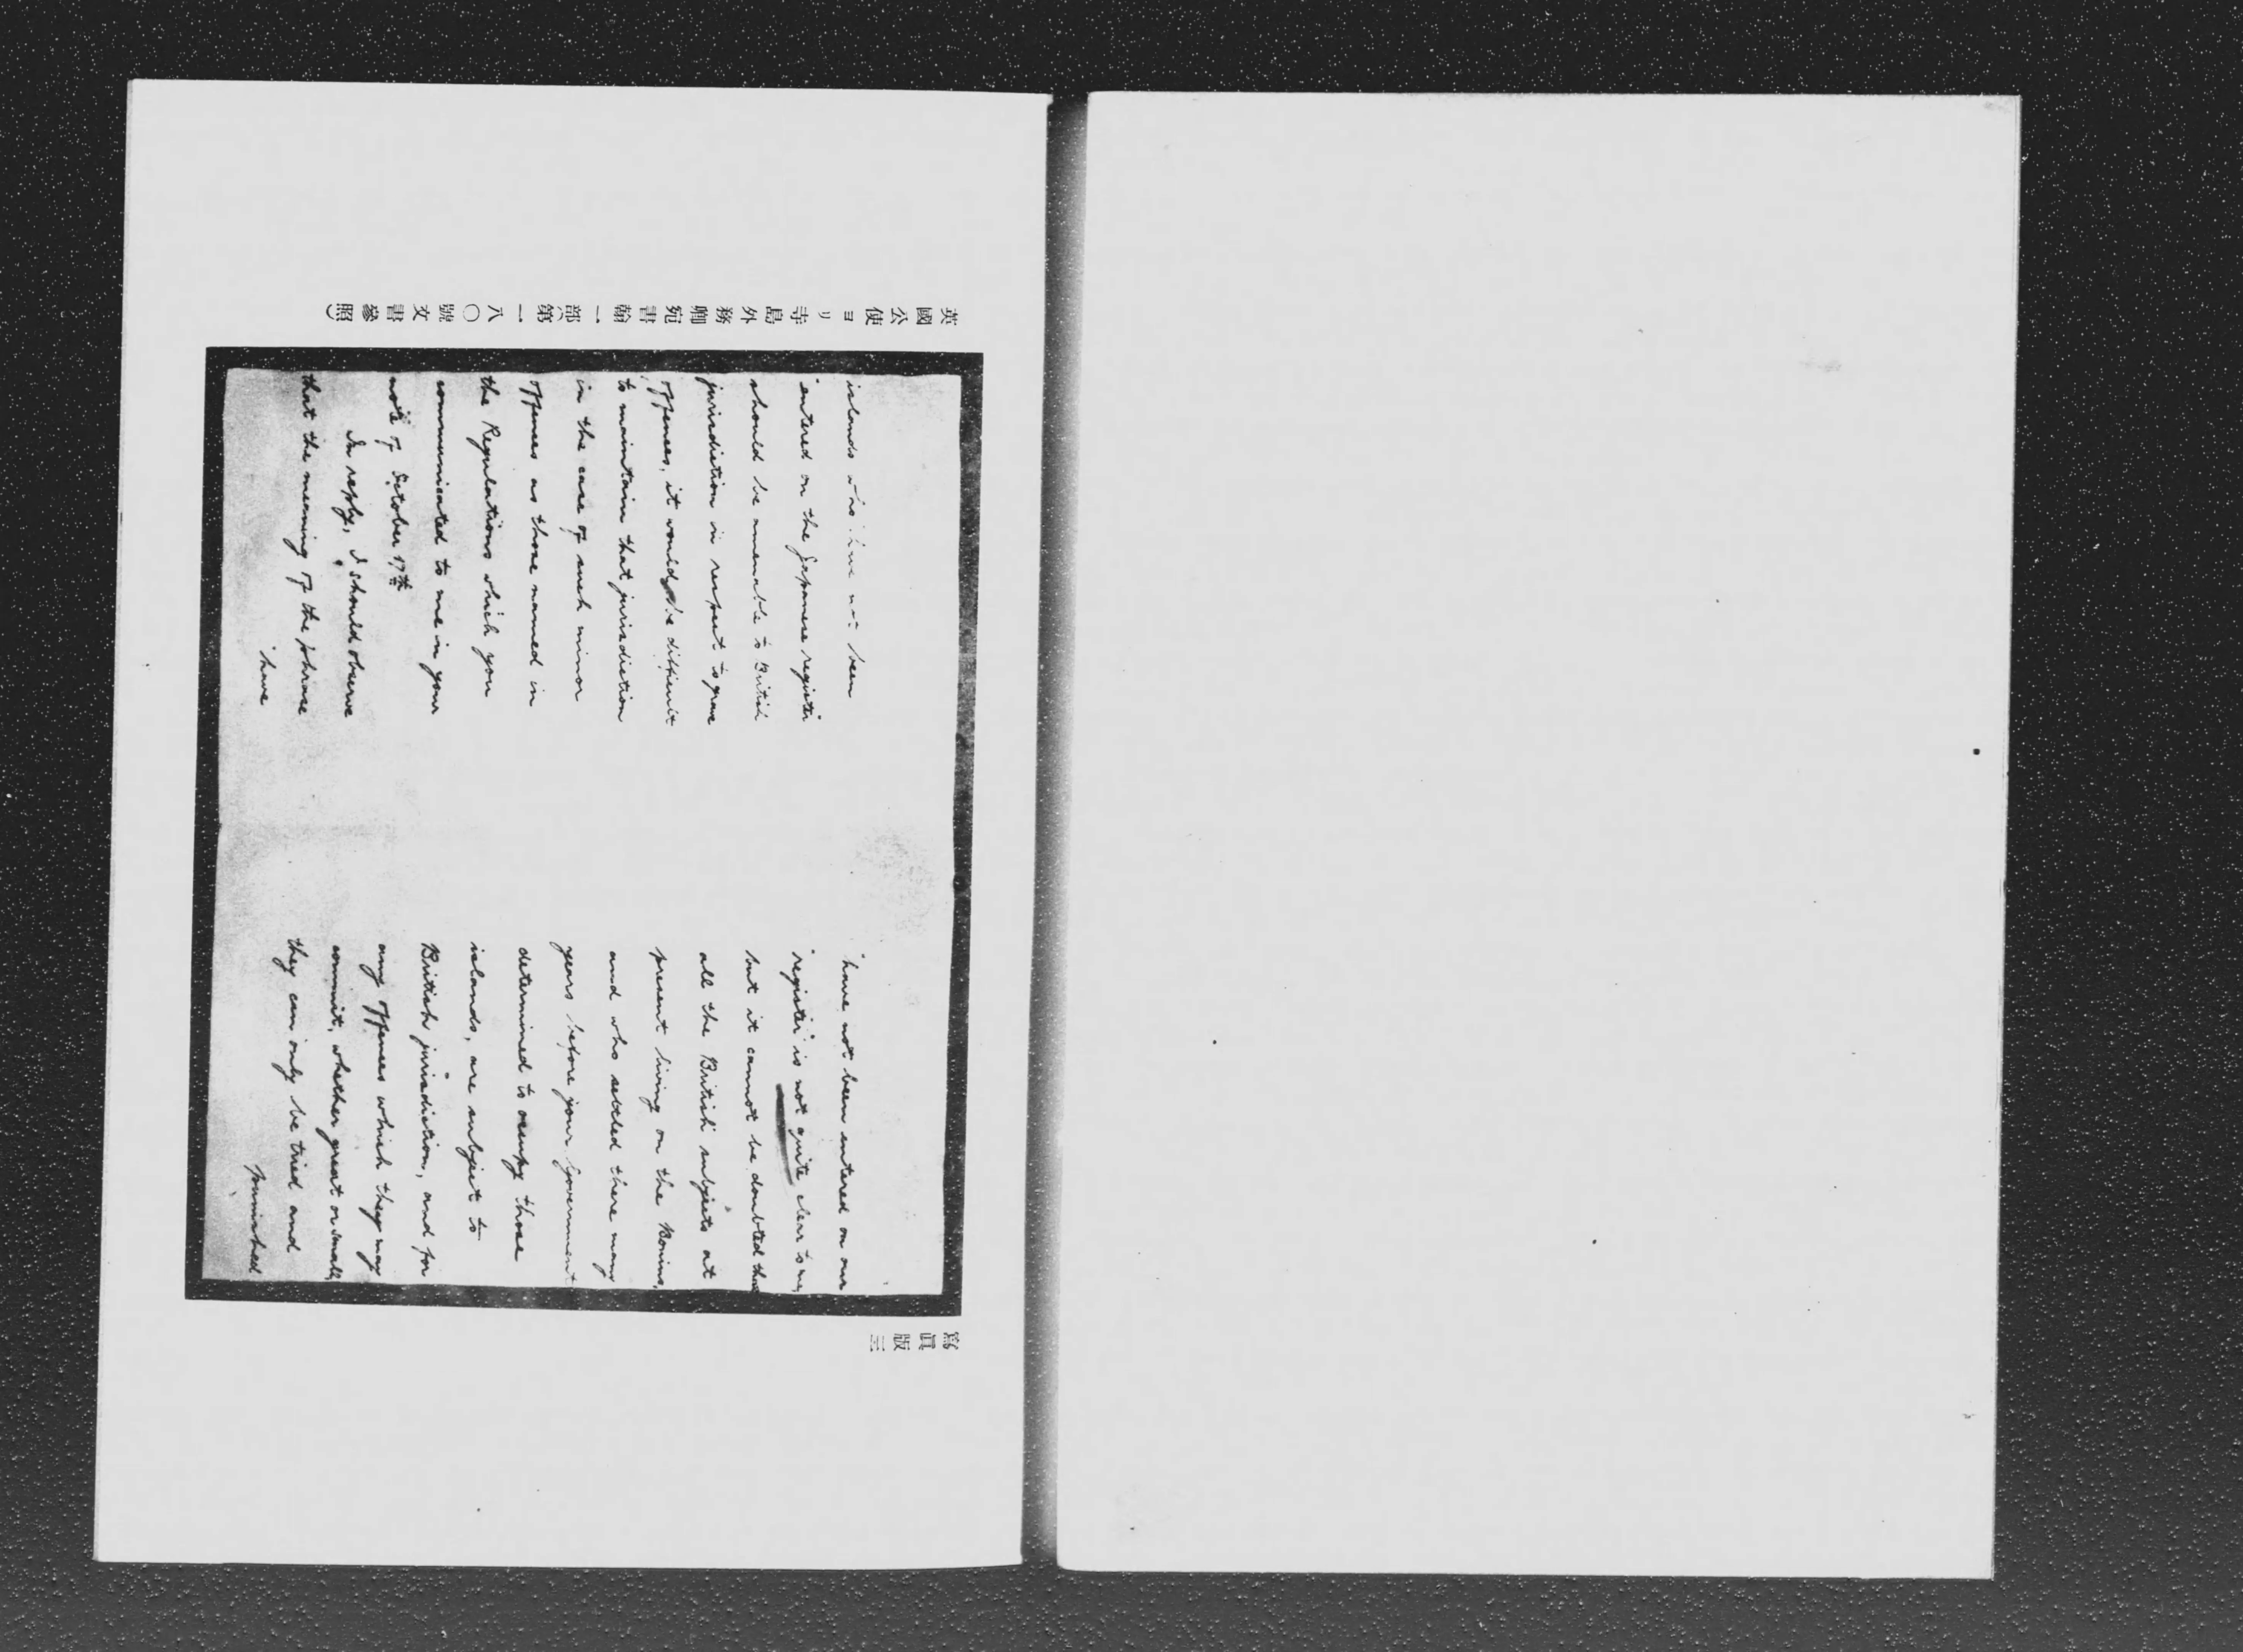 寫眞版三
islands who have not been
"entered on the Japanese register"
should be amenable to British
jurisdiction in respect to grave
offences, it would be difficult
to maintain that jurisdiction
in the case of such minor
offences as those named in
the Regulations which you
communicated to me in your
note of October 17th
In reply, I should observe
that the meaning of the phrase
"have
"have not been entered on our
"register" is not quite clear to me,
but it cannot be doubted that
all the British subjects at
present living on the Bonins,
and who settled there many
years before your Government
determined to occupy those
islands, are subject to
British jurisdiction, and for
any offences which they may
commit, whether great or small,
they can only be tried and
punished
英國公使ヨリ寺島外務卿宛書翰一部(第一八〇號文書參照)